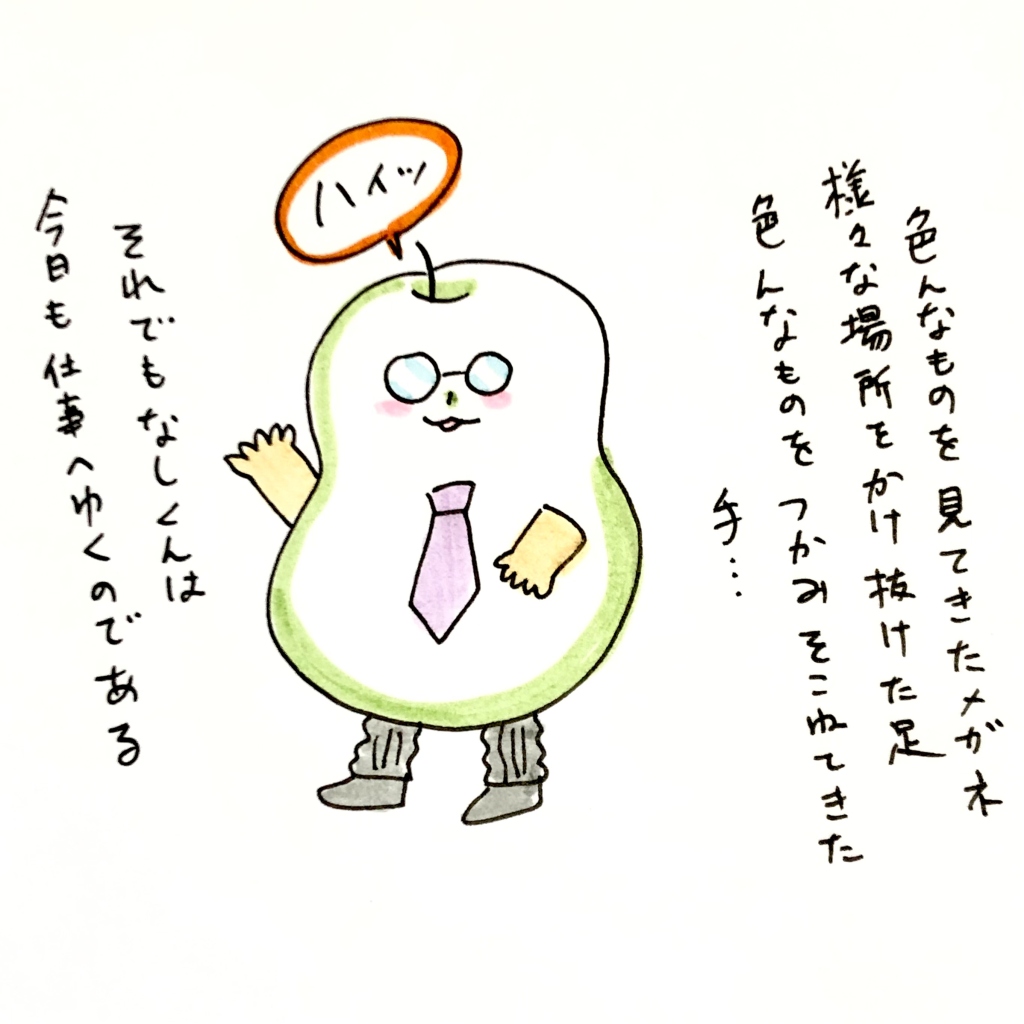 色んなものを見てきたメガネ
様々な場所をかけ抜けた足
色んなものをつかみそこねてきた
手…
ハイッ
それでもなしくんは
今日も仕事へゆくのである